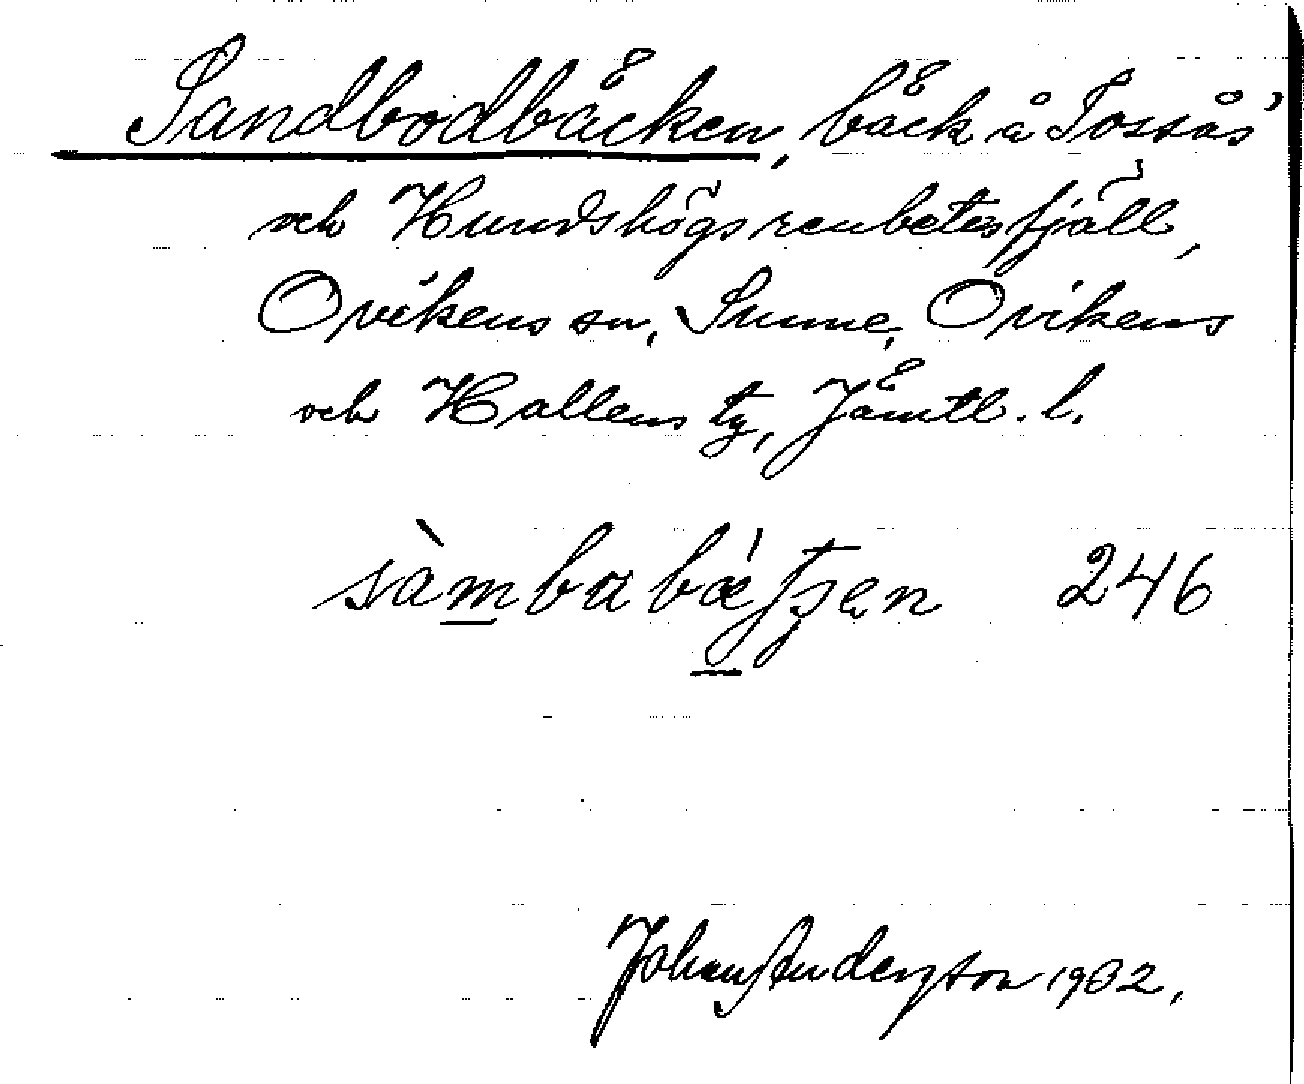 Sandbodbäcken, bäck å Tossås'
och Hundshögs renbetesfjäll,
Ovikens sn, Sunne, Ovikens
och Hallens tg, Jämtl. l.
sàmbabǽʃʈʂen 246
Johan Anderzon 1932.